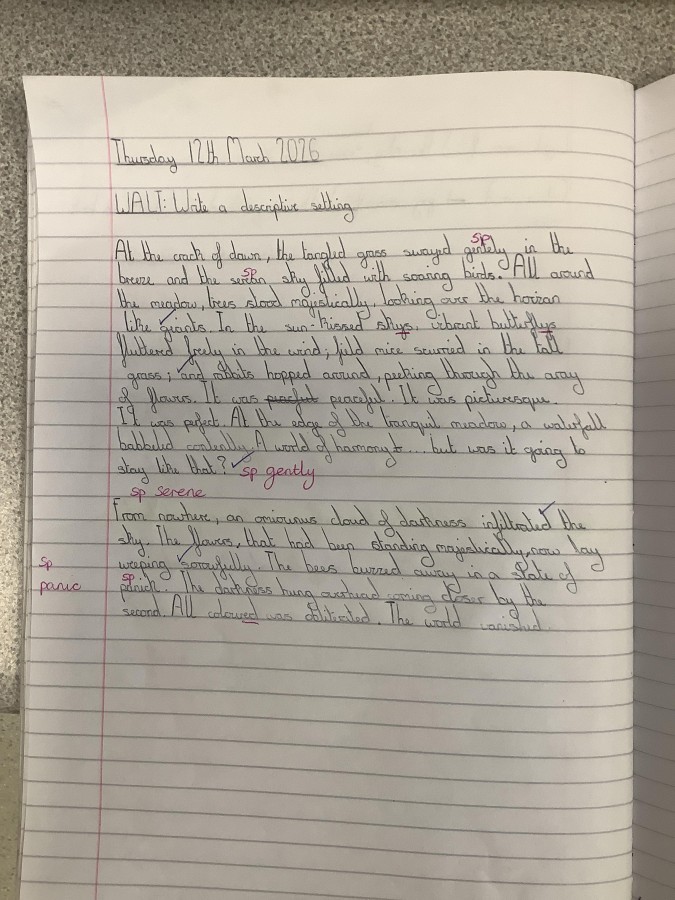 Thursday 12th March 2026
WALT: Write a descriptive setting
sp
At the crack of dawn, the tangled grass swayd gentely in the
sp
breeze and the seren sky filled with soaring birds. All around
the meadow, trees stood majestically, looking over the horizan
like giants. In the sun-kissed skys, vibrant butterflys
fluttered freely in the wind; field mice scurried in the tall
grass; and rabbits hopped around, peeking through the array
of flowers. It was peacful peaceful. It was picturesque.
It was perfect. At the edge of the tranquil meadow, a waterfall
babbeled contently. A world of harmony ... but was it going to
stay like that? sp gently
sp serene
From nowhere, an omiounus cloud of darkness infiltrated the
sky. The flowers, that had been standing majestically, now lay
sp
weeping sorowfully. The bees buzzed away in a state of
sp
panic
panick. The darkness hung overhead coming closer by the
second. All coloured was oblitirated. The world vanished.